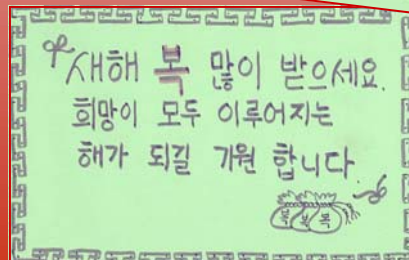 새해 복 많이 받으세요.
희망이 모두 이루어지는
해가 되길 기원 합니다
복 복 복